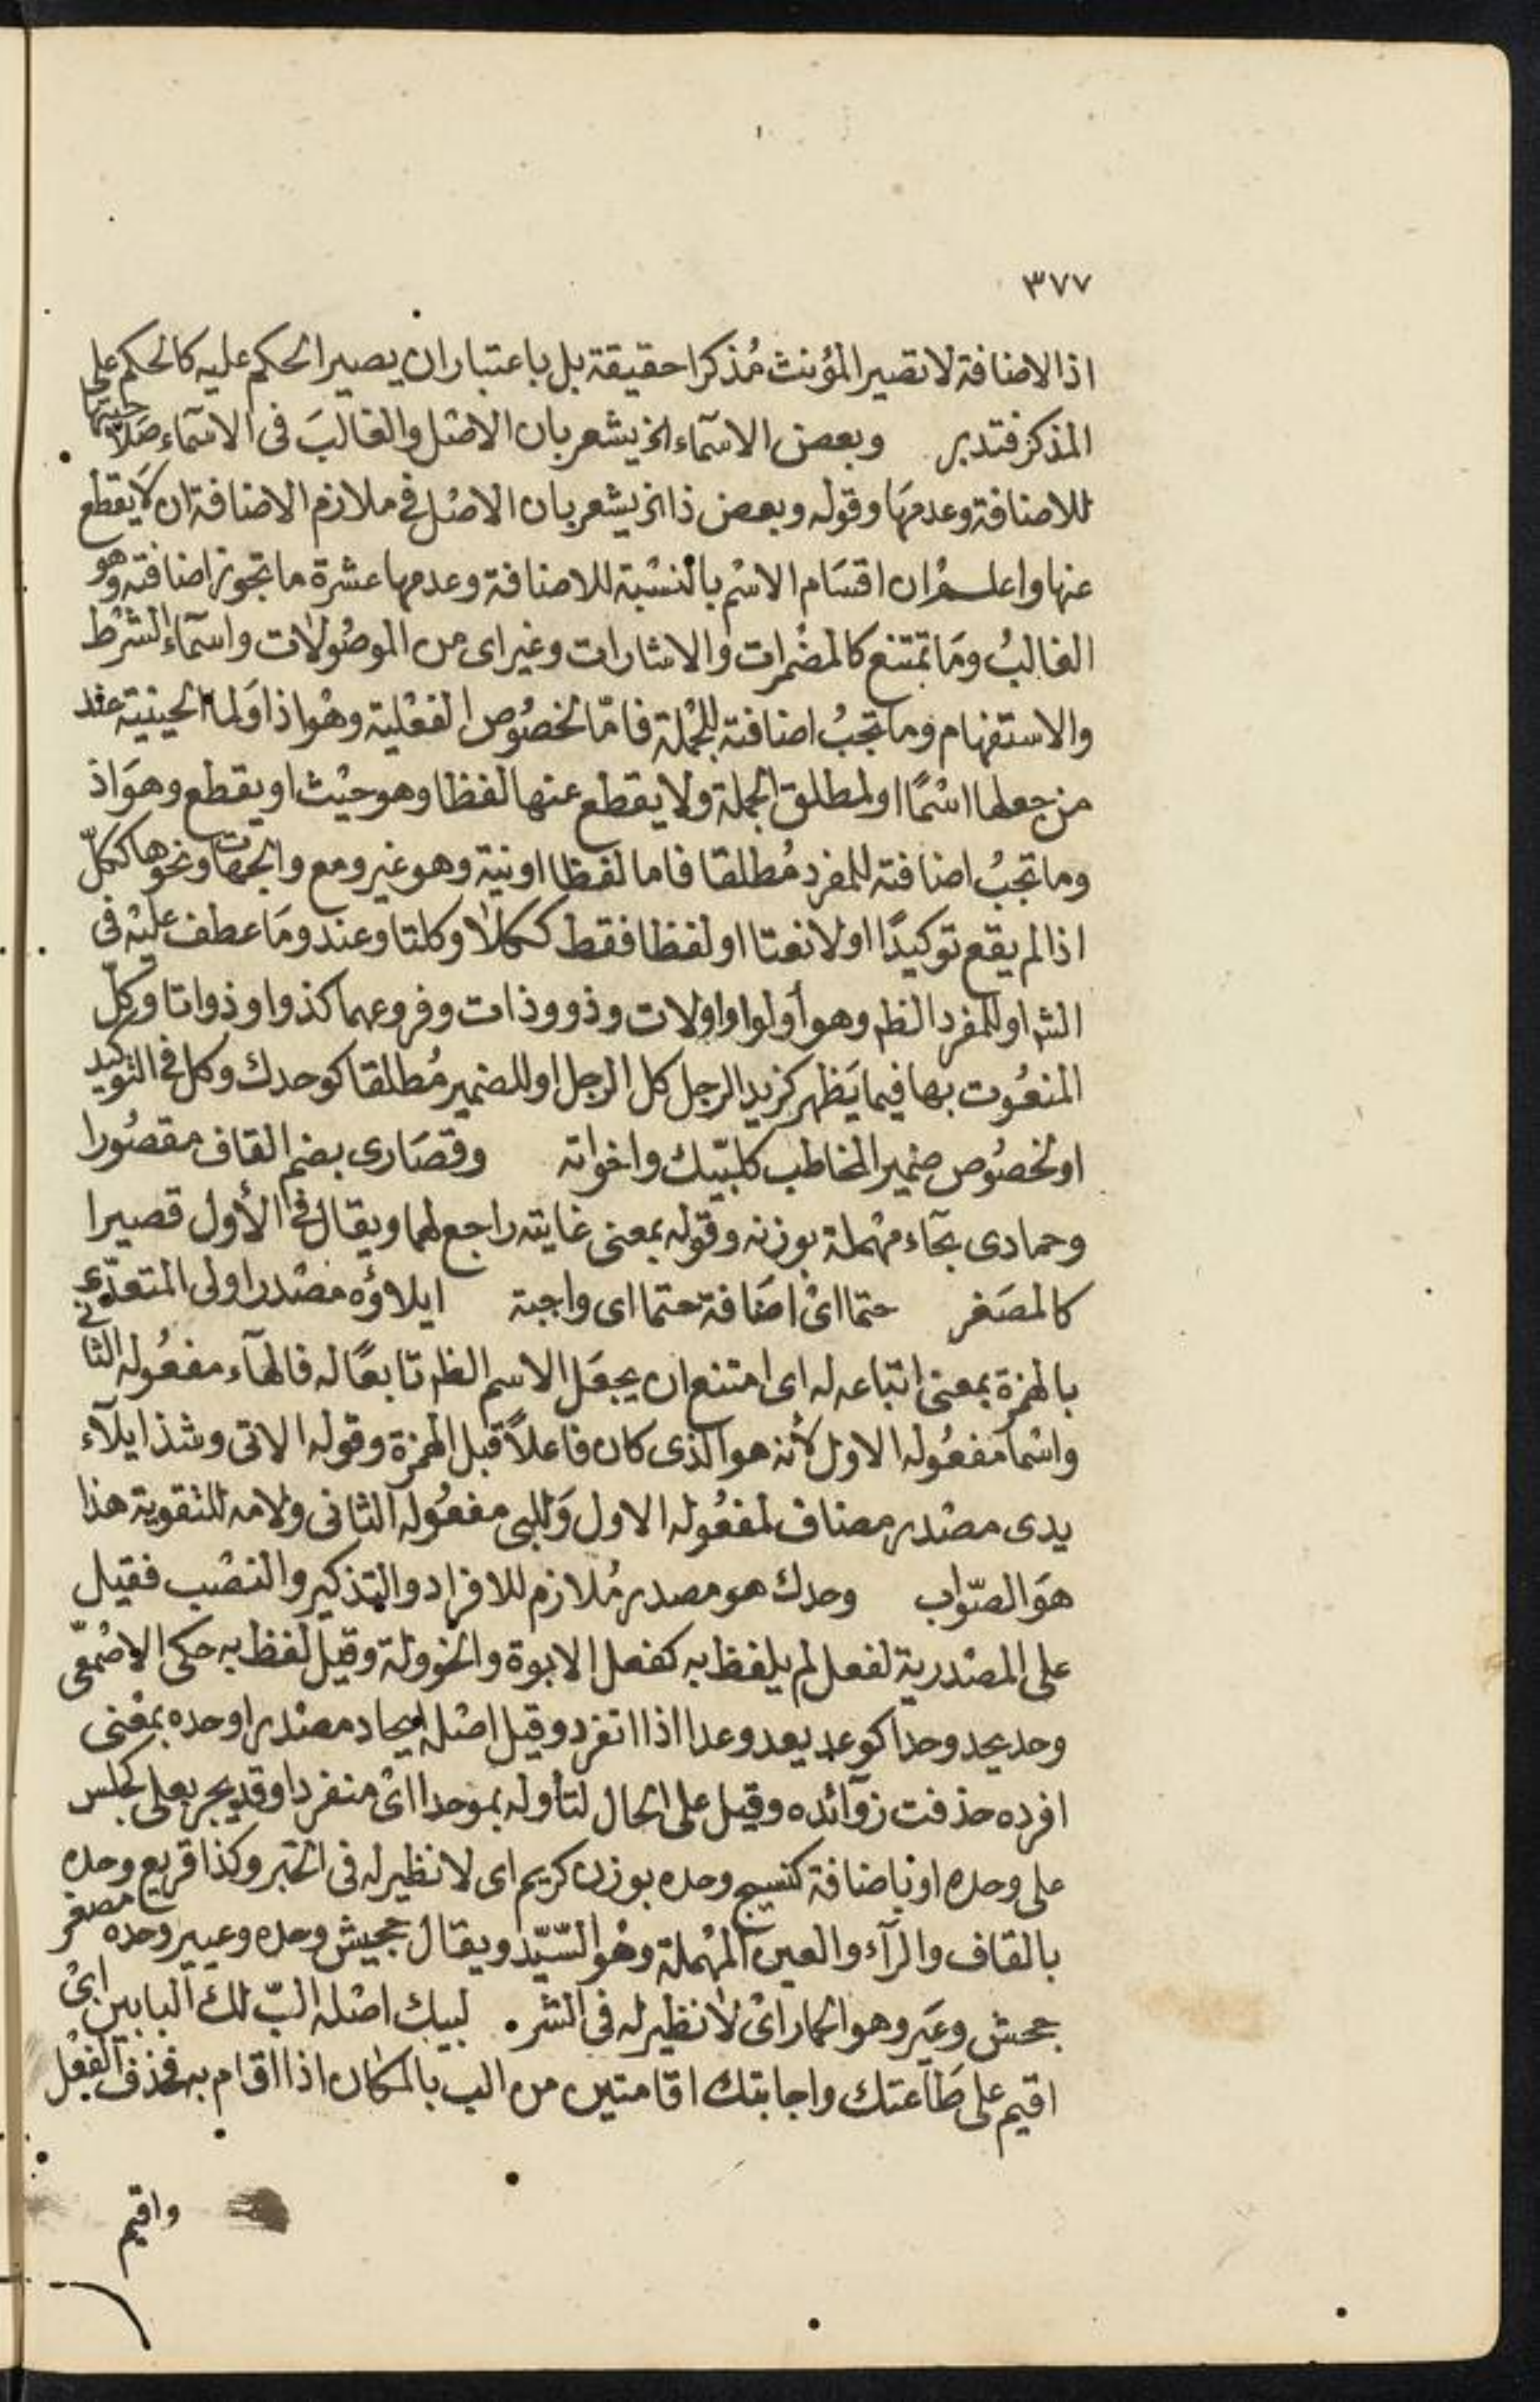 ٣٧٧
اذ الاضافة لا تصير المؤنث مُذكرا حقيقة بل باعتبار ان يصير الحكم عليه كالحكم على
المذكر فتدبر وبعض الاسمآء الخ يشعر بان الاصْل والغالبَ فى الاسمآء صَلاحيتها
للاضافة وعدمهَا وقوله وبعض ذا الخ يشعر بان الاصْل فى ملازم الاضافة ان لا يقطع
عنها واعلم ان اقسَام الاسْم بالنسْبة للاضافة وعدمها عشرة ما تجوز اضافته وهو
الغالبُ ومَا تمتنع كالمضْمرات والاشارات وغير اى من الموصُولات واسمآء الشرْط
والاستفهام وما تجبُ اضافته للجُملة فامّا لخصُوص الفعْلية وهْو اذا وَلما الحينية عند
من جعلها اسْمًا او لمطلق الجملة ولا يقطع عنها لفظا وهو حيْث او يقطع وهوَ اذ
وما تجبُ اضافته للمفرد مُطلقا فاما لفظا او نية وهو غير ومع والجهات ونحوها ككلّ
اذا لم يقع توكيدًا او لا نعتا او لفظا فقط ككلا وكلتا وعند ومَا عطف عليْه فى
الشر او للمفرد الظ وهو أولوا واولات وذو وذات وفروعهما كذوا وذواتا وكلّ
المنعُوت بها فيما يَظهر كزيد الرجل كل الرجل او للضمير مُطلقا كوحدك وكل فى التوكيد
او لخصُوص ضمير المخاطب كلبّيك واخواته وقصَارى بضم القاف مقصُورا
وحمادى بحآء مهْملة بوزنه وقوله بمعنى غايته راجع لهما ويقال فى الأول قصيرا
كالمصَغر حتما اىْ اضَافة حتما اى واجبة ايلاؤه مصْدر اولى المتعدّى
بالهمزة بمعنى اتباعه له اى امتنع ان يجعَل الاسم الظ تابعًا له فالهآء مفعُوله الثانى
واسْما مفعُوله الاول لأنه هو الذى كان فاعلاً قبل الهمزة وقوله الاتى وشذ ايلآء
يدى مصْدر مضاف لمفعُوله الاول وَللبى مفعُوله الثانى ولامه للتقوية هذا
هوَ الصّواب وحدك هو مصدر مُلازم للافراد والتذكير والنصْب فقيل
على المصْدرية لفعل لم يلفظ به كفعل الابوة والخوولة وقيل لفظ به حكى الاصْمعى
وحد يحد وحدا كوعد يعد وعدا اذا انفرد وقيل اصْله ايحاد مصْدر اوحده بمعْنى
افرده حذفت زوآئده وقيل على الحال لتأوله بموحدا اىْ منفردا وقد يجر بعلى كجلس
على وحده او باضافة كنسيج وحده بوزن كريم اى لا نظير له فى الخير وكذا قريع وحده
بالقاف والرآء والعين المهْملة وهْو السّيّد ويقال جحيش وحده وعيير وحده مصغر
جحش وعَير وهو الحمار اىْ لا نظير له فى الشر. لبيك اصْله البّ لك البابين اىْ
اقيم على طَاعتك واجابتك اقامتين من الب بالمكان اذا اقام به فحذف الفعْل
واقيم